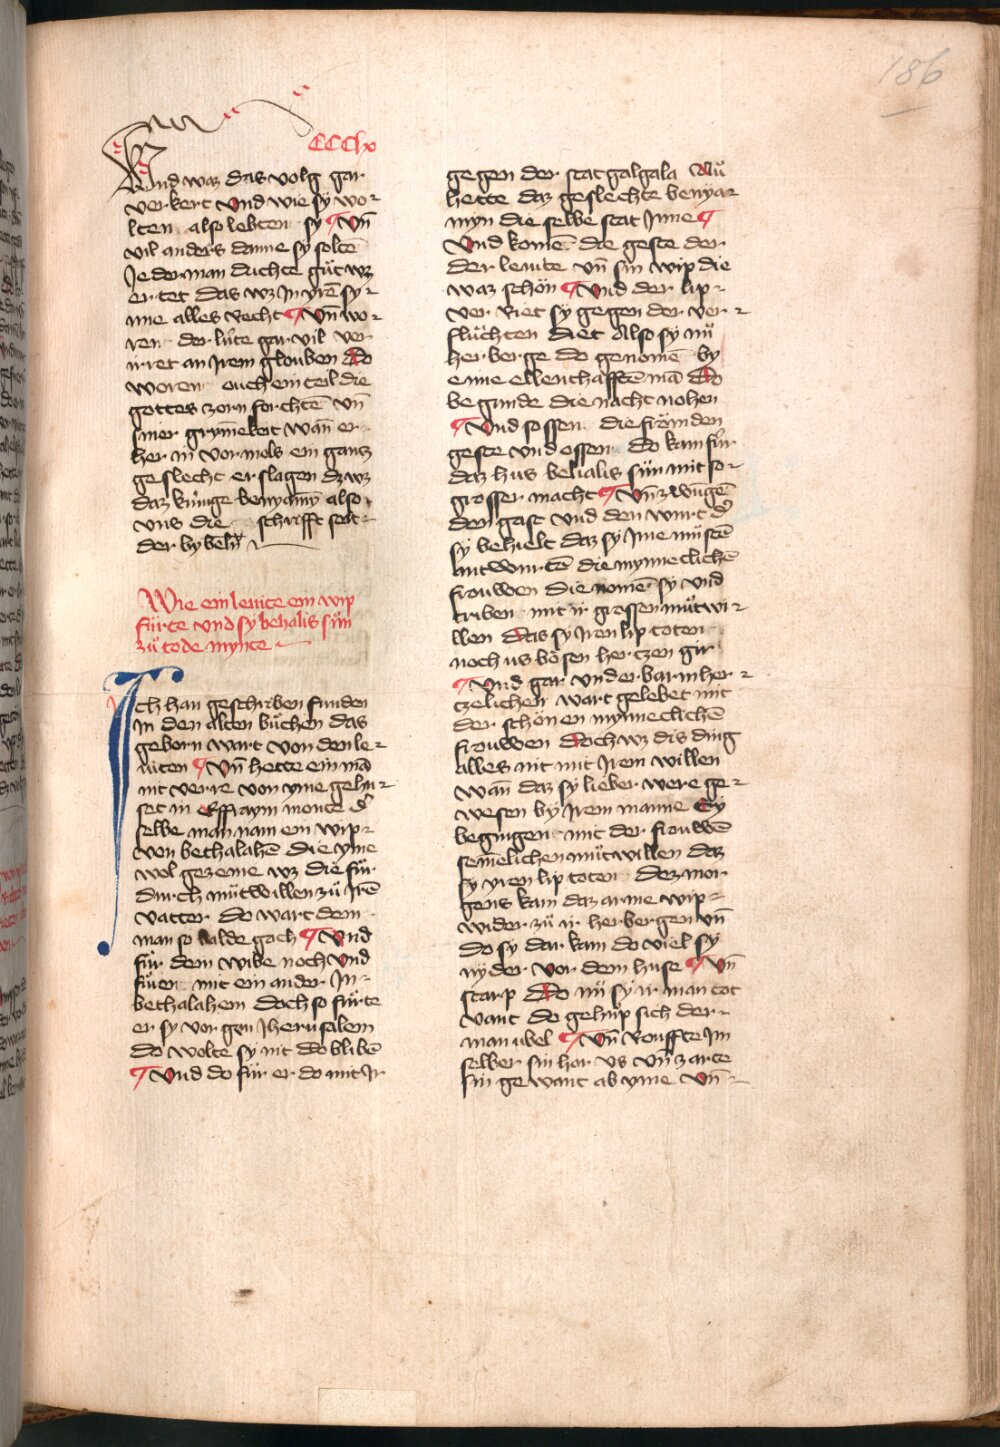 186
CCClx
Vnd waz das volg gar
verkert Vnd wie sÿ wo-
lten also lebten sy ¶ Vn̄
vil anders danne sy soltē
Jederman duchte gůt wz
er tet das wz Jn yrē sy-
nne alles recht ¶ Vn̄ wo-
ren der lúte gar vil ver
irret an Jrem glouben Do
woren ouch ein teil die
gottes zorn forchtē vn̄
siner grym̄ekeit wan̄ er
her in vor mols ein gantz
geslecht erslagen dz wz
daz kúnige benyamÿ also
vns die schrifft seit
der bybeln
Wie ein leuite ein wip
fürte vnd sy behalis sün
zů tode mynte
Ich han geschriben funden
Jn den alten bůchen das
geborn wart von den le-
uiten ¶ Vn̄ hette ein mā
nit verre von yme gehu-
set in Effraym monte d͛
selbe man nam ein wip
von bethalahē die yme
wol gezeme wz die fůr
durch můtwillen zů Jrē
vatter do wart dem
man so balde goch ¶ Vnd
fůr dem wibe noch Vnd
fůren mit ein ander Jn
bethalahem doch so fůrte
er sy vor gen Jherusalem
do wolte sy nit do blibē
¶ Vnd do fůr er do mit Jr
gegen der stat galgala Nů
hette daz geslechte benyar
myn die selbe stat Jnne ¶
Vnd komē die geste der
der leuite vn̄ sin wip die
waz schön ¶ Vnd der lip-
ver riet sy gegen der ver-
flůchten diet Also sy nů
herberge do genomē by
eime ellenthafftē mā Do
begunde die nacht nohen
¶ Vnd sossen die frömden
geste vnd ossen do kam fúr
daz hus belialis sún mit so-
grosser macht ¶ Vn̄ zwūgē
den gast vnd den wurt d͛
sy behielt daz sy Jme můstē
antwurtē die mynneclichē
frouwen die nomē sy vnd
triben mit ir grossen můtwi-
llen das sy Jren lip toten
noch vs bösen hertzen gir
¶ Vnd gar vnder barmher-
tzelichen wart gelebet mit
der schönen mynneclichē
frouwen doch wz dis ding
alles nit mit Jrem willen
wan̄ daz sy lieber were ge-
wesen by Jrem manne Sy
begingen mit der frouwē
semelichen můtwillen daz
sy yren lip toten dez mor
gens kam daz arme wip
wider zů ir herbergen vn̄
do sy dar kam do viel sy
nyder vor dem huse ¶ Vn̄
starp Do nů sy ir man tot
vant do gehůp sich der
man übel ¶ Vn̄ Rouffte Jm
selber sin har vs vn̄ zarte
sin gewant ab yme vn̄